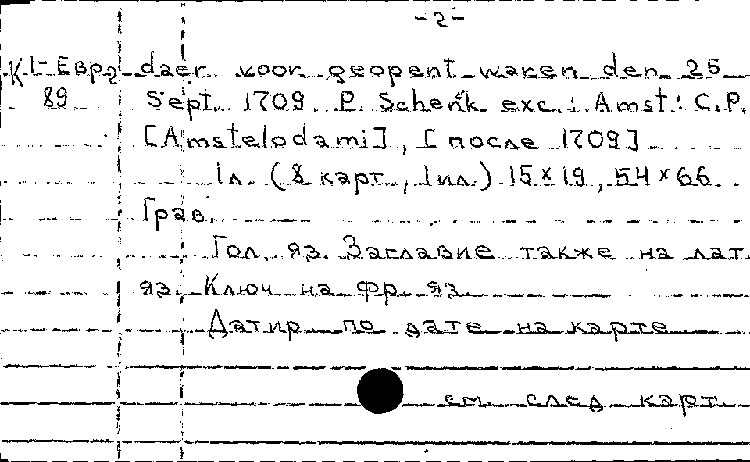 -2-
К 1-Евр2 daer voor geopent waren den 25
89 Sept. 1709. P. Schenk exc.: Amst: C.P.
[Amstelodami], [после 1709]
1л. (8 карт., 1 ил.) 15×19, 54×66.
Грав.
Гол. яз. Заглавие также на лат.
яз. Ключ на фр. яз.
Датир. по дате на карте
см. след карт.